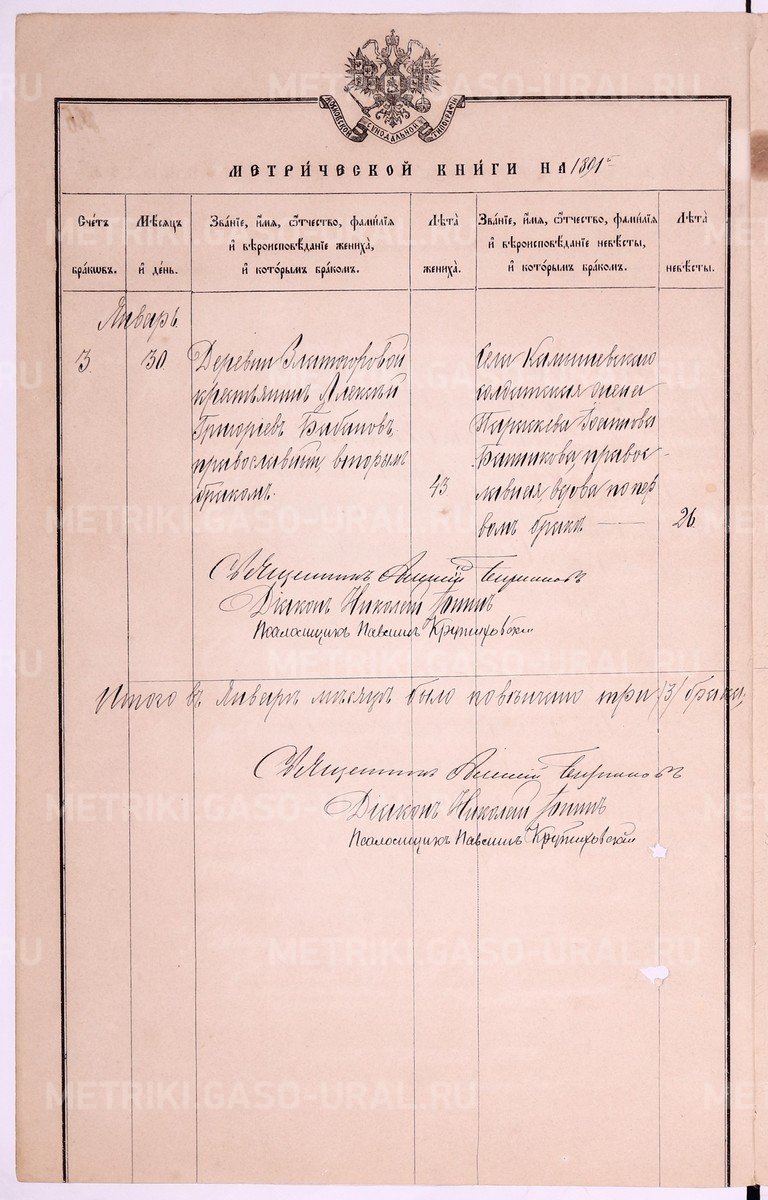 МОСКОВСКОЙ СѴНОДАЛЬНОЙ ТИПОГРАФІИ
МЕТРИ́ЧЕСКОЙ КНИ́ГИ НА 1891 г.
Сче́тъ бра́кωвъ.
Мѣ́сяцъ и҆ де́нь.
Зва́нїе, и҆́мя, ѻ҆́тчество, фамѝлїя
и҆ вѣроисповѣ́данїе жениха̀,
и҆ кото́рымъ бра́комъ.
Лѣ́та жениха̀.
Зва́нїе, и҆́мя, ѻ҆́тчество, фамѝлїя
и҆ вѣроисповѣ́данїе невѣ́сты,
и҆ кото́рымъ бра́комъ.
Лѣ́та невѣ́сты.
Январь.
3.
30.
Деревни Златогоровой
крестьянинъ Алексѣй
Григорьевъ Бабановъ,
православный, вторымъ
бракомъ.
43
Села Камышевскаго
солдатская жена
Параскева
православ-
ная вдова по пер
вомъ бракѣ —
26.
Священникъ
Діаконъ Николай
Псаломщикъ Павлинъ Крутиховскій
Итого въ Январѣ мѣсяцѣ было повѣнчано три /3/ брака,
Священникъ
Діаконъ Николай
Псаломщикъ Павлинъ Крутиховскій
METRIKI.GASO-URAL.RU